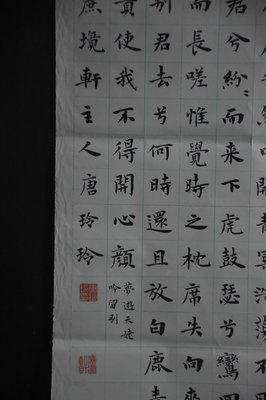 青冥浩蕩不
君兮紛〻而来下虎鼓瑟兮鸞
而長嗟惟覺時之枕席失向來
別君去兮何時還且放白鹿青
貴使我不得開心顏
境軒主人唐玲玲
夢遊天姥
吟留別